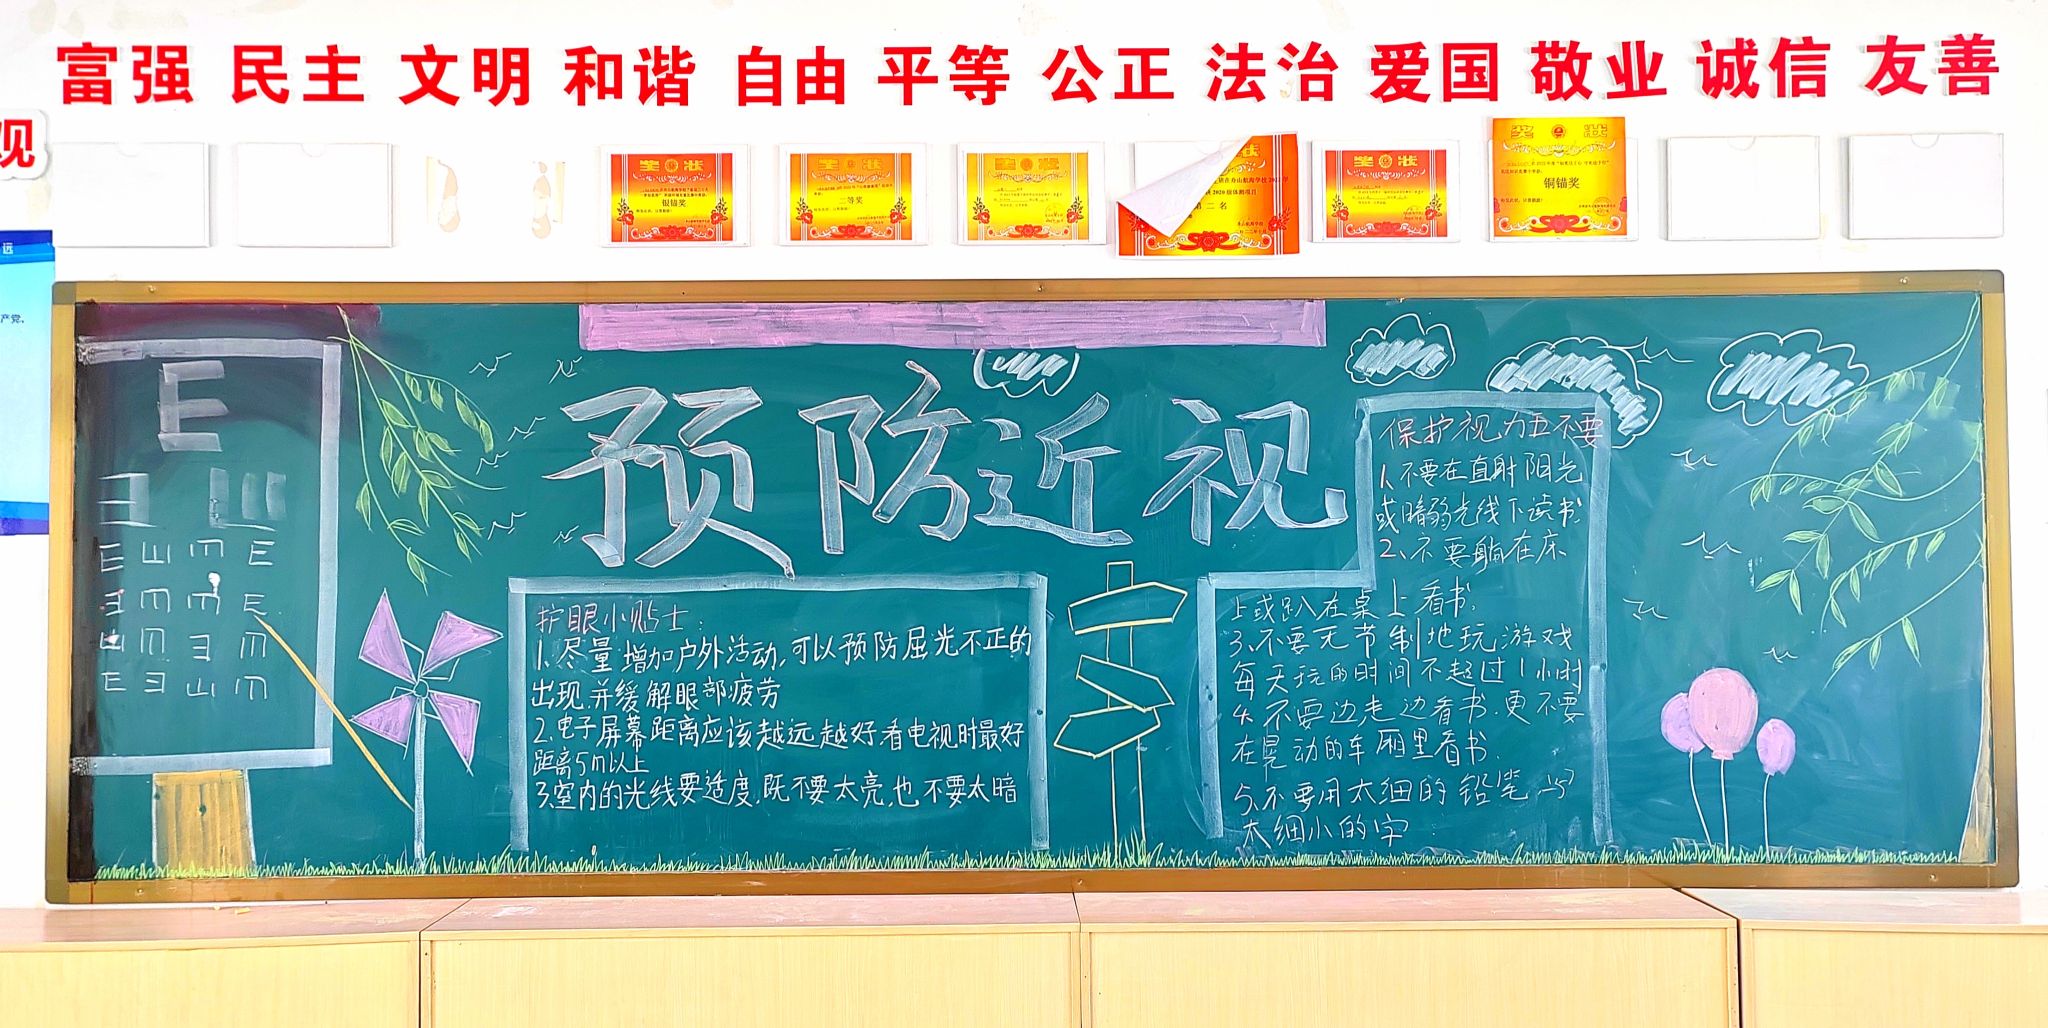 富强 民主 文明 和谐 自由 平等 公正 法治 爱国 敬业 诚信 友善
观
远
产党、
奖状
银锚奖
奖状
二等奖
奖状
状
第二名
奖状
奖状
铜锚奖
E
预防近视
护眼小贴士:
1、尽量增加户外活动,可以预防屈光不正的
出现,并缓解眼部疲劳
2、电子屏幕距离应该越远越好,看电视时最好
距离5m以上
3、室内的光线要适度,既不要太亮,也不要太暗
保护视力五不要
1、不要在直射阳光
或暗弱光线下读书,
2、不要躺在床
上或趴在桌上看书,
3、不要无节制地玩游戏
每天玩的时间不超过1小时
4、不要边走边看书,更不要
在晃动的车厢里看书,
5、不要用太细的铅笔写
太细小的字